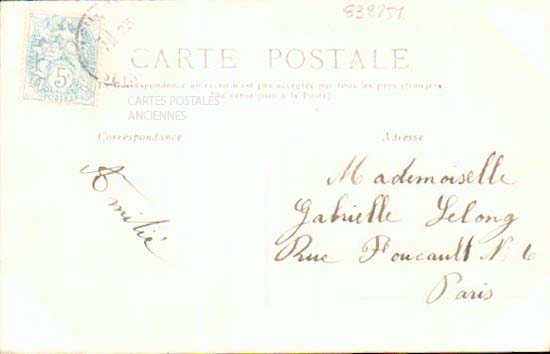 838251
CARTE POSTALE
Correspondance au recto n'est pas acceptée par tous les pays étrangers
(Se renseigner à la Poste)
CARTES POSTALES
ANCIENNES
Correspondance
Adresse
5c
POSTES
Amitié
Mademoiselle
Gabrielle Lelong
Rue Foucault N 6
Paris